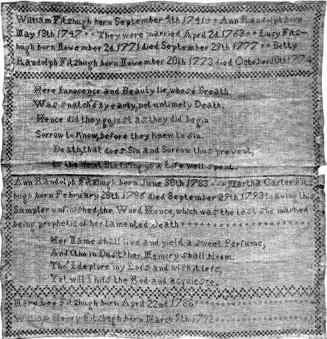 William Fitzhugh born September 4th 1741 Ann Randolph born
May 13th 1747 They were married April 2d 1763 Lucy Fitz-
hugh born November 2d 1771 died September 29th 1777 Betty
Randolph Fitzhugh born November 20th 1773 died October 10th 1774
Here Innocence and Beauty lie, whose Breath
Was snatch'd by early, not untimely Death.
Hence did they go just as they did begin
Sorrow to know, before they knew to sin.
Death, that does Sin and Sorrow thus prevent,
Is the next Blessing to a Life well spent.
Ann Randolph Fitzhugh born June 30th 1783 Martha Carter Fitz-
hugh born February 28th 1786 died September 27th 1793 leaving this
Sampler unfinished, the Word Hence, which was the last she marked
being prophetic of her lamented death
Her Name shall live and yield a sweet Perfume,
And tho in Dust her Memory shall bloom.
Tho' I deplore my Loss and wish it less,
Yet will I kiss the Rod and acquiesce.
Mary Lee Fitzhugh born April 22nd 1788
William Henry Fitzhugh born March 9th 1792